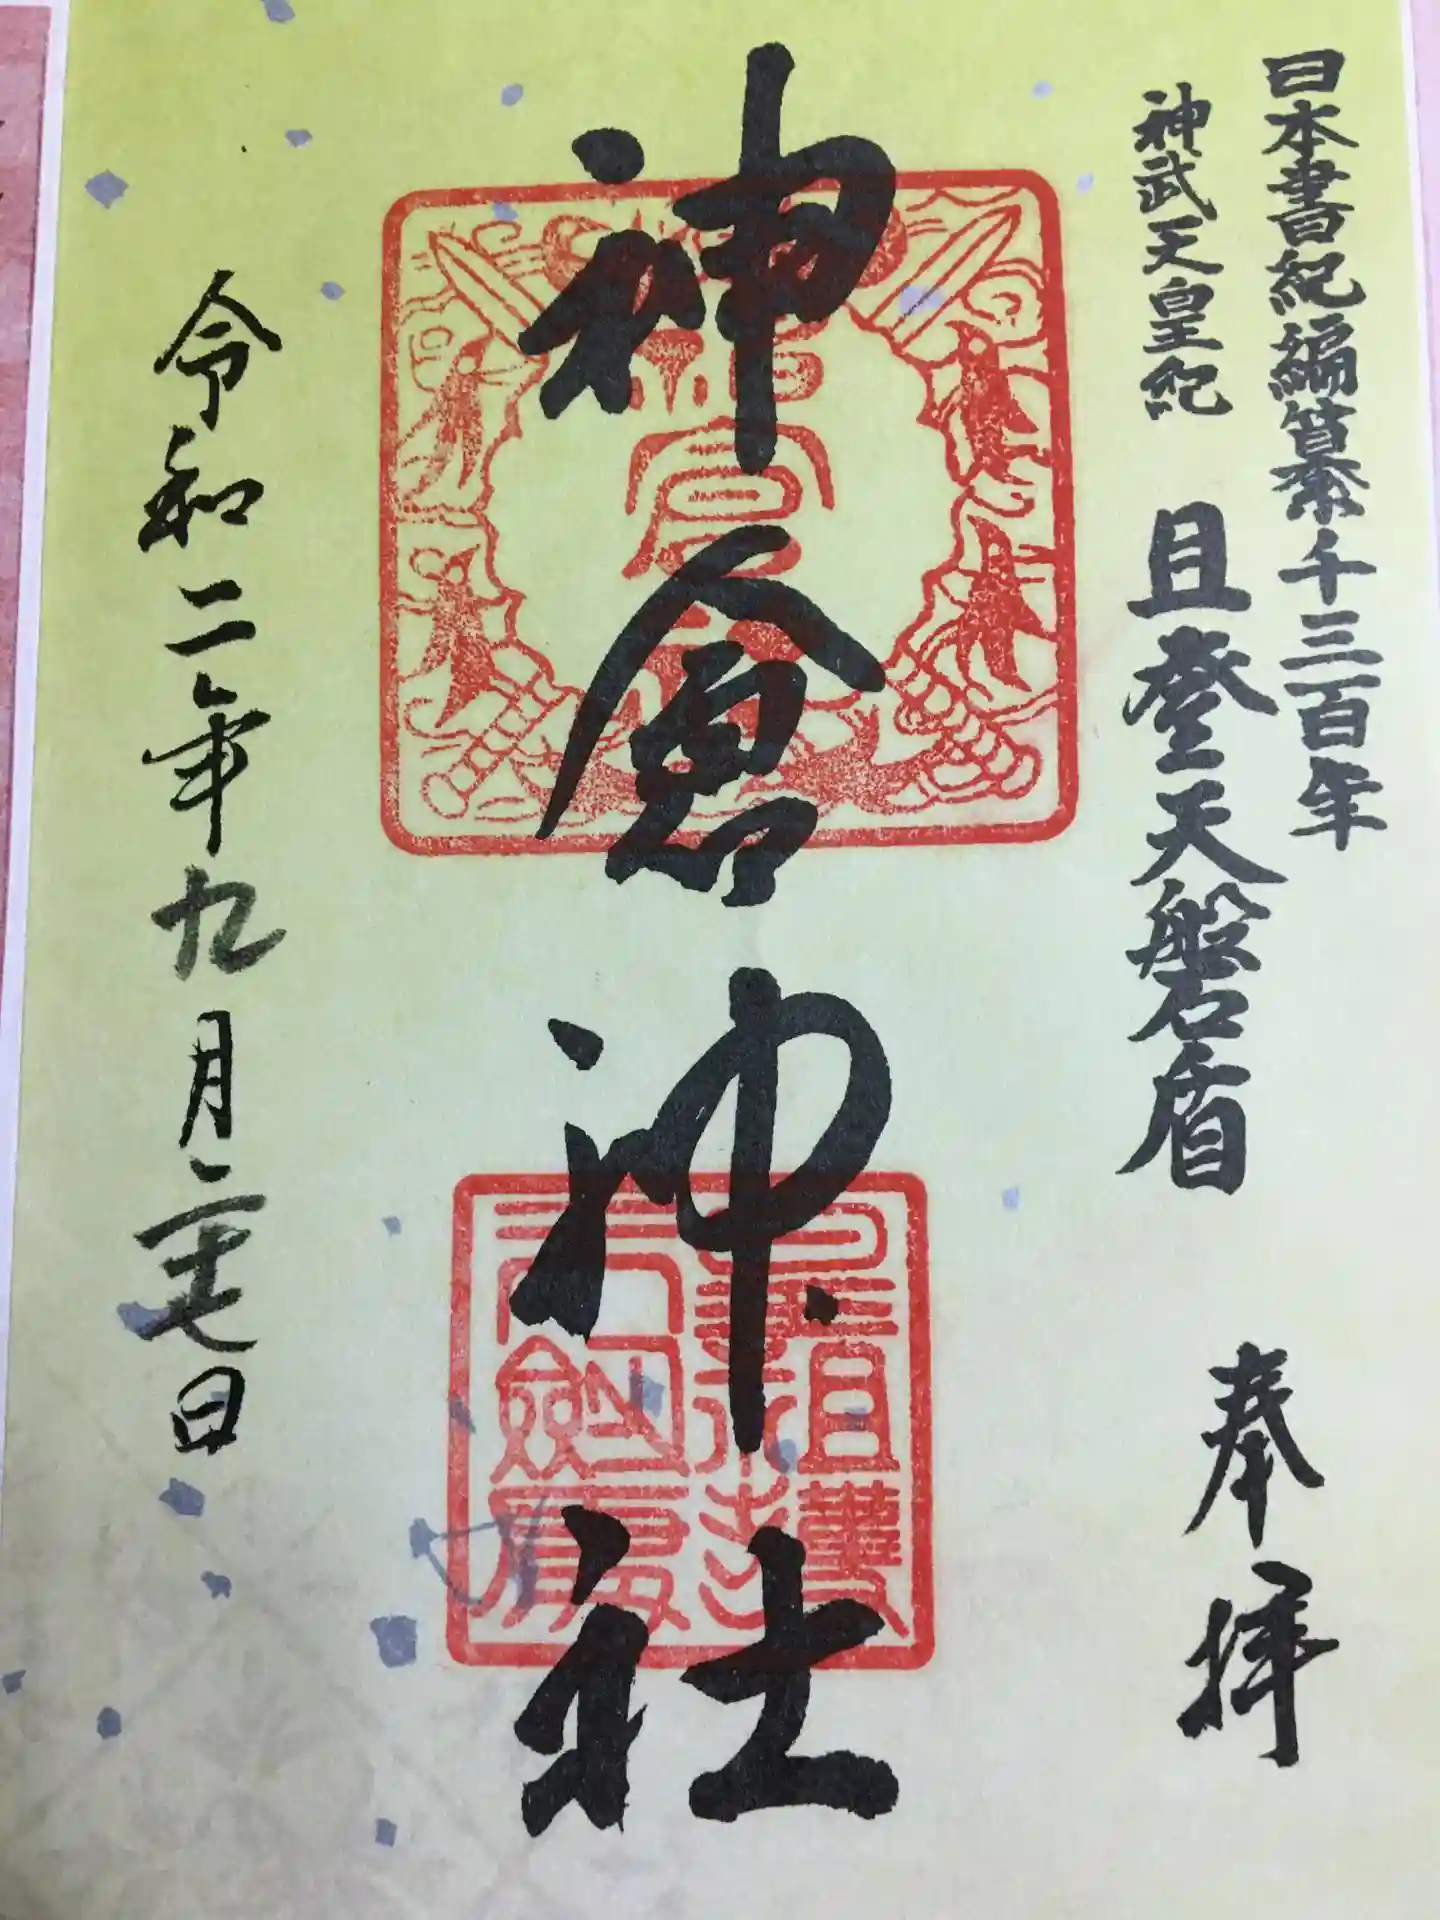 日本書紀編纂千三百年
神武天皇紀 且登天磐盾
奉拝
神倉神社
令和二年九月二十七日